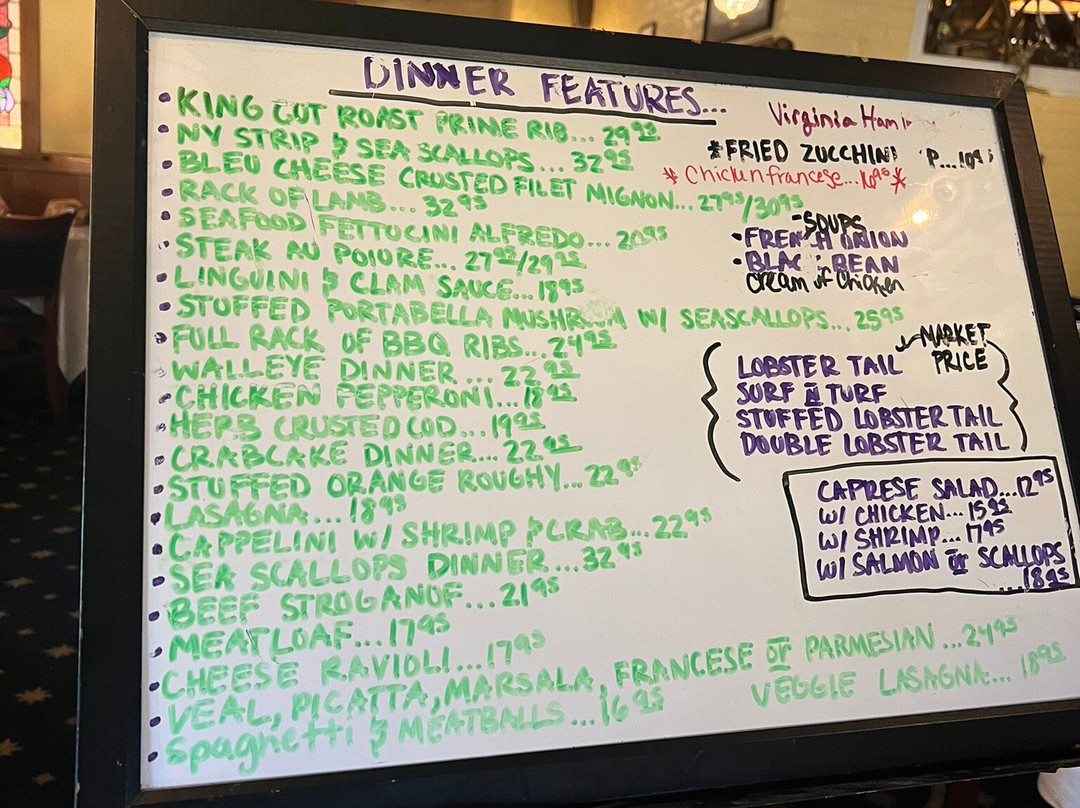 DINNER FEATURES...
• KING CUT ROAST PRIME RIB... 29 95
• NY STRIP & SEA SCALLOPS... 32 95
• BLEU CHEESE CRUSTED FILET MIGNON... 27 95/30 95
• RACK OF LAMB... 32 95
• SEAFOOD FETTUCINI ALFREDO... 20 95
• STEAK AU POIURE... 27 95/29 95
• LINGUINI & CLAM SAUCE... 18 95
• STUFFED PORTABELLA MUSHROOM W/ SEASCALLOPS... 25 95
• FULL RACK OF BBQ RIBS... 24 95
• WALLEYE DINNER... 22 95
• CHICKEN PEPPERONI... 18 95
• HERB CRUSTED COD... 19 95
• CRABCAKE DINNER... 22 95
• STUFFED ORANGE ROUGHY... 22 95
• LASAGNA... 18 95
• CAPPELINI W/ SHRIMP & CRAB... 22 95
• SEA SCALLOPS DINNER... 32 95
• BEEF STROGANOF... 21 95
• MEATLOAF... 17 95
• CHEESE RAVIOLI... 17 95
• VEAL, PICATTA, MARSALA, FRANCESE or PARMESIAN... 24 95
• Spaghetti & MEATBALLS... 16 95
VEGGIE LASAGNA... 18 95
Virginia Ham
*FRIED ZUCCHINI
* Chicken francese... 16 95 *
-SOUPS
• FRENCH ONION
• BLACK BEAN
Cream of Chicken
MARKET
PRICE
LOBSTER TAIL
SURF N TURF
STUFFED LOBSTER TAIL
DOUBLE LOBSTER TAIL
CAPRESE SALAD... 12 95
W/ CHICKEN... 15 95
W/ SHRIMP... 17 95
W/ SALMON or SCALLOPS
... 18 95